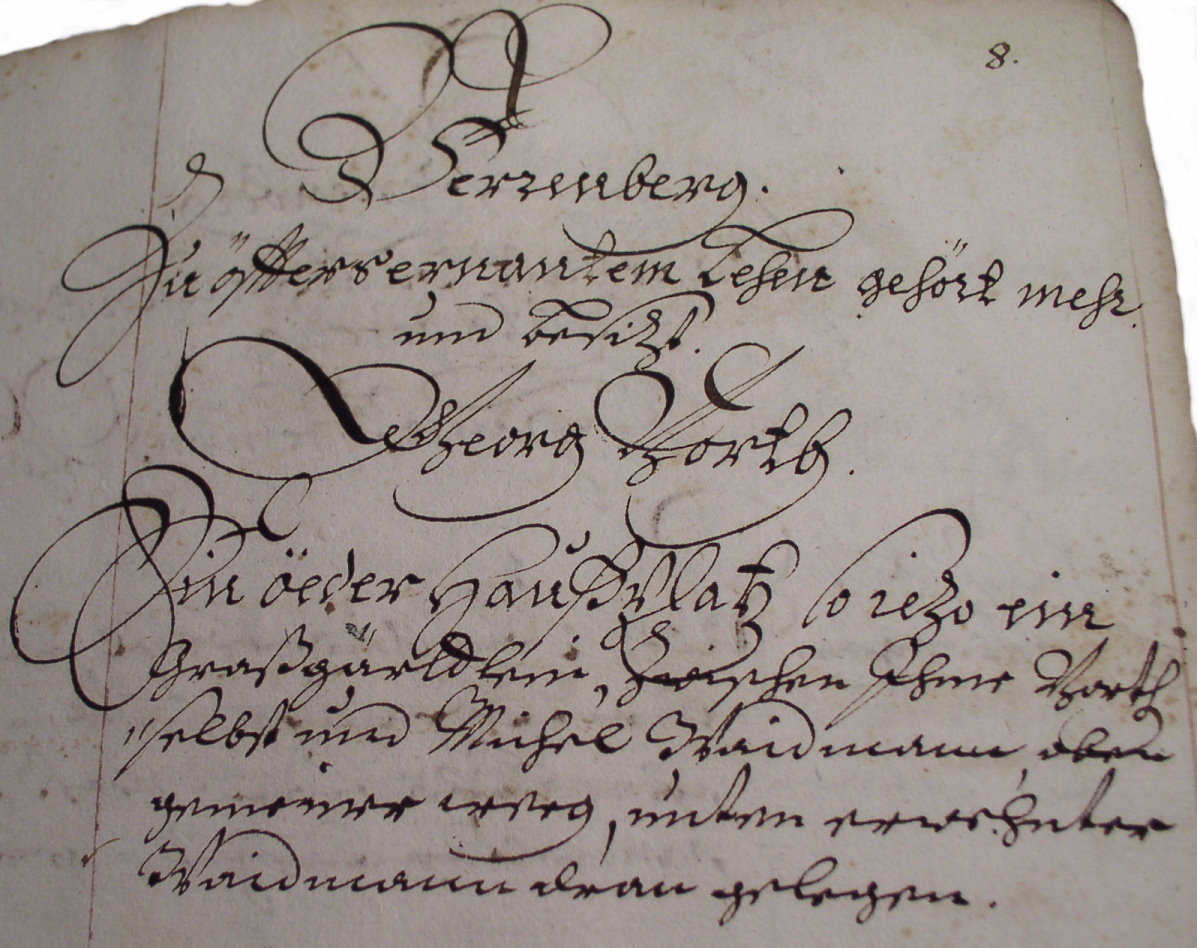 8.
Serrenberg.
Zu öffters ernantem Lehen gehört mehr
und besitzt.
Georg Barth.
Ein öeder Haußplatz so iezo ein
Graßgärtlein, zwischen Ihme Barth
selbst und Michel Waidmann, oben
gemeiner weeg, unten erwehnter
Waidmann dran gelegen.